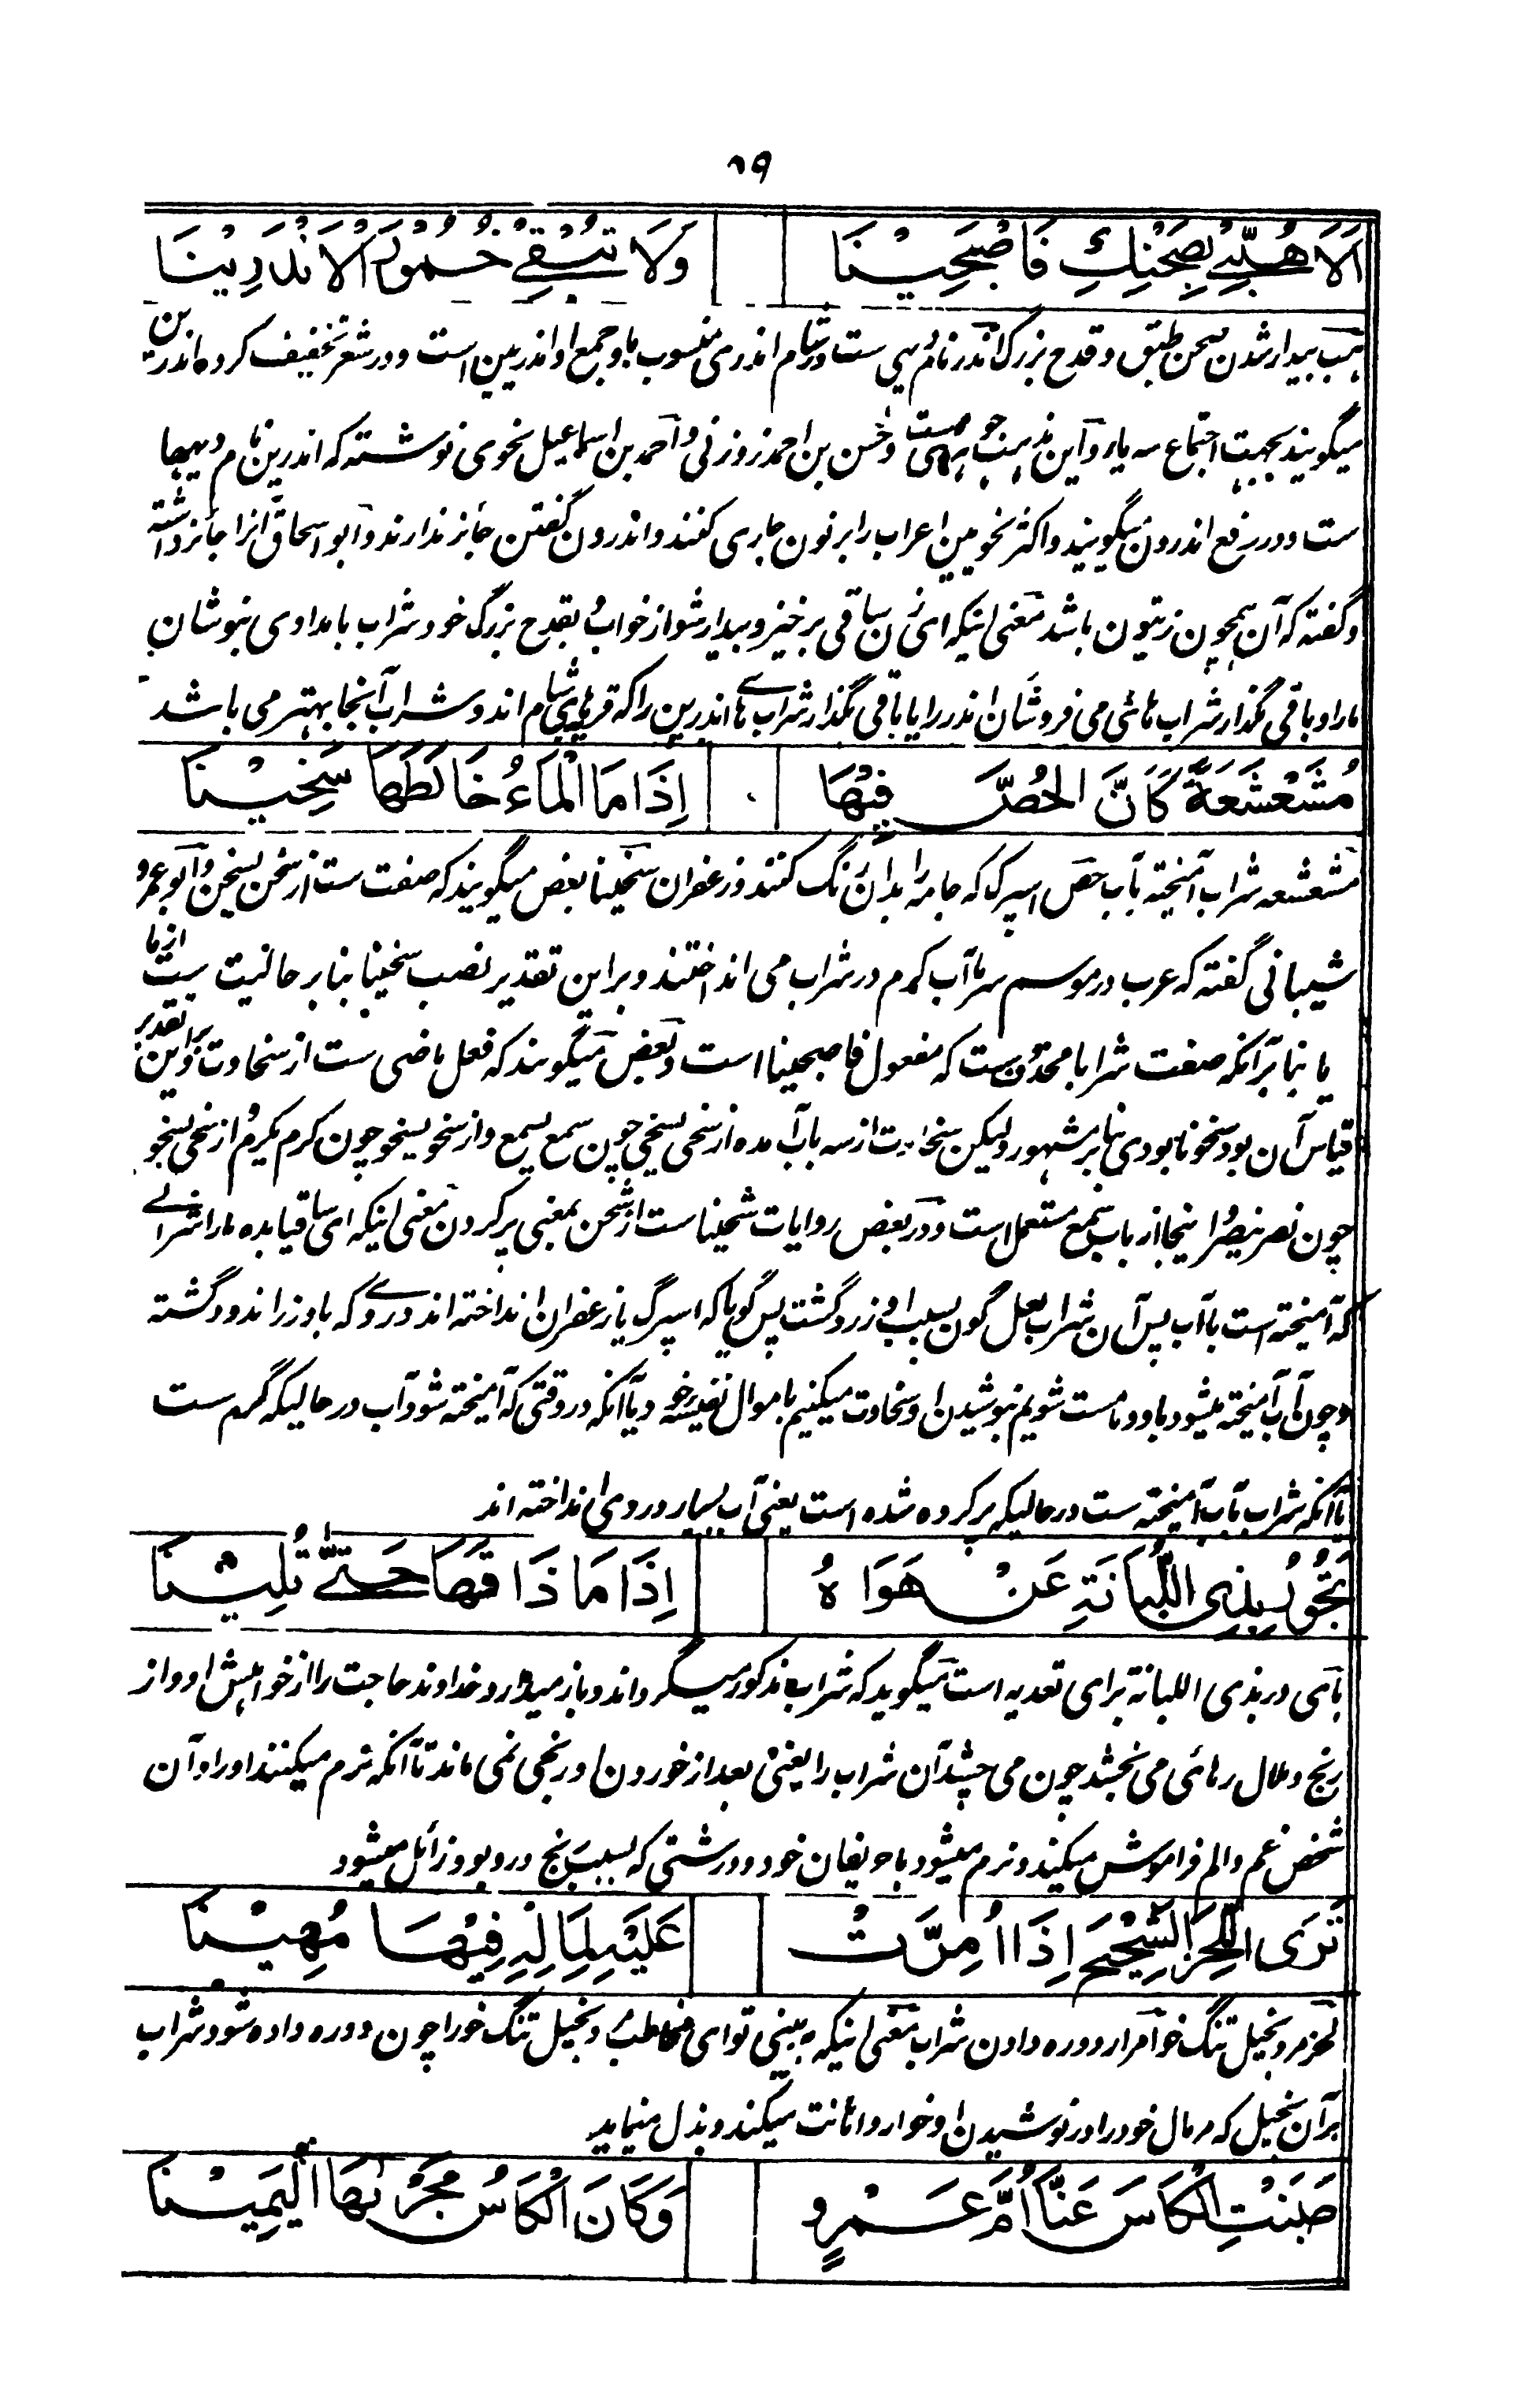 ٨٩
اَلَا هُبِّيْ بِصَحْنِكِ فَاصْبَحِيْنَا وَلَا تُبْقِيْ خُمُوْرَ الْاَنْدَرِيْنَا
هب بیدار شدن صحن طبق و قدح بزرگ اندر نام دهی ست در شام اندرمی منسوب باو جمع او اندریین است و در شعر تخفیف کرده اندرین
میگویند بجهت اجتماع سه یاء و این مذهب جوهری ست و حسن بن احمد زوزنی و احمد بن اسماعیل نحوی نوشته که اندرین نام دیهها
ست و در رفع اندرون میگویند و اکثر نحویین اعراب را بر نون جاری کنند و اندرون گفتن جائز ندارند و ابو اسحاق آنرا جائز داشته
و گفته که آن همچون زیتون باشد معنی اینکه ای زن ساقی برخیز و بیدار شو از خواب بقدح بزرگ خود شراب بامدادی بنوشان
مارا و باقی مگذار شراب هائی می فروشان اندر را یا باقی مگذار شرابے ها اندرین را که قریهای شام اند و شراب آنجا بهتر می باشد
مُشَعْشَعَةً كَاَنَّ الْحُصَّ فِيْهَا اِذَا مَا الْمَاءُ خَالَطَهَا سَخِيْنَا
مشعشعه شراب آمیخته بآب حص اسپرک که جامه را بدان رنگ کنند و زعفران سخینا بعض میگویند که صفت ست از سخن یسخن و ابو عمرو
شیبانی گفته که عرب در موسم سرما آب گرم در شراب می انداختند و براین تقدیر نصب سخینا بنا بر حالیت ست از ما
یا بنا بر آنکه صفت شرابا محذوف ست که مفعول فاصبحینا است و بعض میگویند که فعل ماضی ست از سخاوت و براین تقدیر
قیاس آن بود سخونا بودی بنا بر مشهور و لیکن سخاوت از سه باب آمده از سخی یسخی چون سمع یسمع و از سخو یسخو چون کرم یکرم و از سخی یسخو
چون نصر ینصر و اینجا از باب سمع مستعمل است و در بعض روایات شحینا ست از شحن بمعنی پر کردن معنی اینکه ای ساقیا بده مارا شرابے
که آمیخته است بآب پس آن شراب لعل گون بسبب او زرد گشت پس گویا که اسپرگ یا زعفران انداخته اند در وے که باو زر اندود گشته
و چون آب آمیخته میشود باو و ما مست شویم بنوشیدن او سخاوت میکنیم باموال نفیسه خود و یا آنکه در وقتی که آمیخته شود آب در حالیکه گرم ست
یا آنکه شراب بآب آمیخته ست در حالیکه پر کرده شده است یعنی آب بسیار در وی انداخته اند
تَجُوْرُ بِذِي اللُّبَانَةِ عَنْ هَوَاهُ اِذَا مَا ذَاقَهَا حَتّٰى تُلِيْنَا
بای در بذی اللبانة برای تعدیه است میگوید که شراب مذکور میگرداند و باز میدارد خداوند حاجت را از خواهش او و از
رنج و ملال رهائی می بخشد چون می چشد آن شراب را یعنی بعد از خوردن او رنجی نمی ماند تا آنکه نرم میکنند اورا و آن
شخص غم و الم فراموش میکند و نرم میشود باحریفان خود و درشتی که بسبب رنج در و بود زائل میشود
تَرَى اللَّحِزَ الشَّحِيْحَ اِذَا اُمِرَّتْ عَلَيْهِ لِمَالِهِ فِيْهَا مُهِيْنَا
لحز مرد بخیل تنگ خو امرار دوره دادن شراب معنی اینکه به بینی تو ای مخاطب بخیل تنگ خو را چون دوره داده شود شراب
بر آن بخیل که مر مال خود را در نوشیدن او خوار و اهانت میکند و بذل مینماید
صَبَنْتِ الْكَاْسَ عَنَّا اُمَّ عَمْرٍو وَكَانَ الْكَاْسُ مَجْرٰىهَا الْيَمِيْنَا